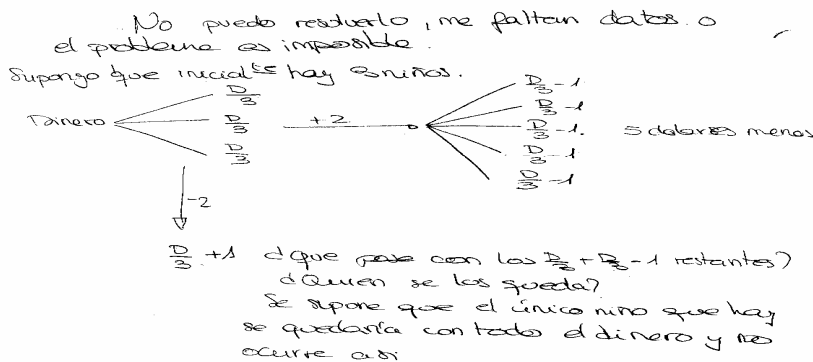 No puedo resolverlo, me faltan datos o
el problema es imposible.
Supongo que inicial<sup>te</sup> hay 3 niños.
Dinero
D/3
D/3
D/3
+2
D/3 - 1
D/3 - 1
D/3 - 1.
D/3 - 1
D/3 - 1
5 dolares menos
-2
D/3 + 1 ¿Que pasa con los D/3 + D/3 - 1 restantes?
¿Quien se los queda?
Se supone que el único niño que hay
se quedaría con todo el dinero y no
ocurre asi